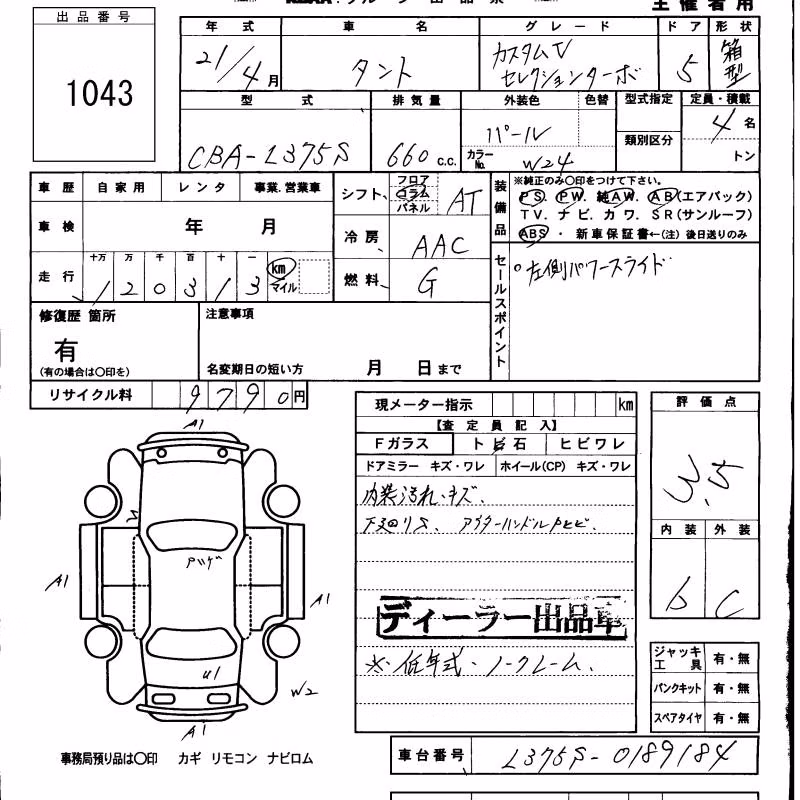 主催者用
出品番号
1043
年式 車名 グレード ドア 形状
21/4月 タント カスタムV セレクションターボ 5 箱型
型式 排気量 外装色 色替 型式指定 定員・積載
類別区分
CBA-L375S 660 c.c. パール カラーNo. W24 4名
トン
車歴 自家用 レンタ 事業.営業車
シフト フロア コラム パネル AT
車検 年 月
冷房 AAC
走行 十万 万 千 百 十 一 km マイル
120313
燃料 G
装備品
※純正のみ○印をつけて下さい。
PS. PW. 純AW. AB(エアバック)
TV. ナビ. カワ. SR(サンルーフ)
ABS ・ 新車保証書←(注) 後日送りのみ
セールスポイント
○左側パワースライド
修復歴 箇所
有
(有の場合は○印を)
注意事項
名変期日の短い方 月 日まで
リサイクル料 9790円
現メーター指示 km
【査定員記入】
Fガラス トビ石 ヒビワレ
ドアミラー キズ・ワレ ホイール(CP) キズ・ワレ
内装汚れ・キズ、
下廻りS、アウターハンドルPヒビ、
ディーラー出品車
※低年式・ノークレーム、
評価点
3.5
内装 外装
b C
ジャッキ工具 有・無
パンクキット 有・無
スペアタイヤ 有・無
A1
S
Pハゲ
A1
A1
U1
W2
A1
事務局預り品は○印 カギ リモコン ナビロム
車台番号 L375S-0189184